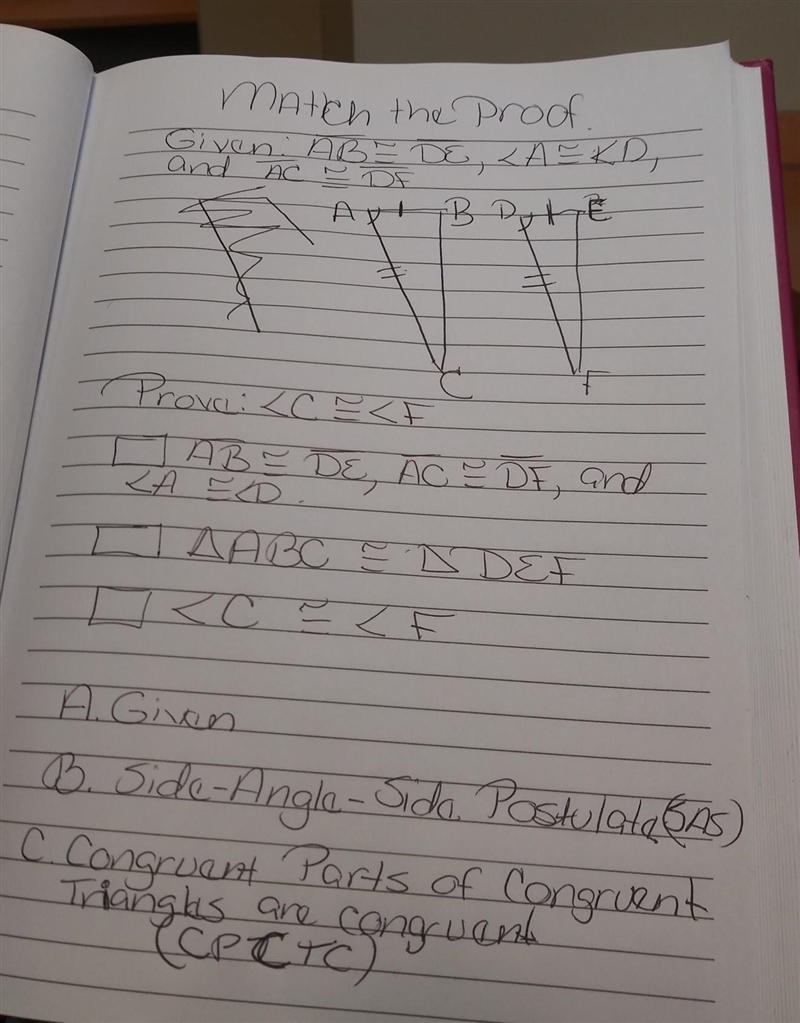 Match the Proof.
Given: AB ≅ DE, <A ≅ <D,
and AC ≅ DF
A B D E
C F
Prove: <C ≅ <F
AB ≅ DE, AC ≅ DF, and
<A ≅ <D.
△ABC ≅ △DEF
<C ≅ <F
A. Given
B. Side-Angle-Side Postulate (SAS)
C. Congruent Parts of Congruent
Triangles are congruent
(CPCTC)